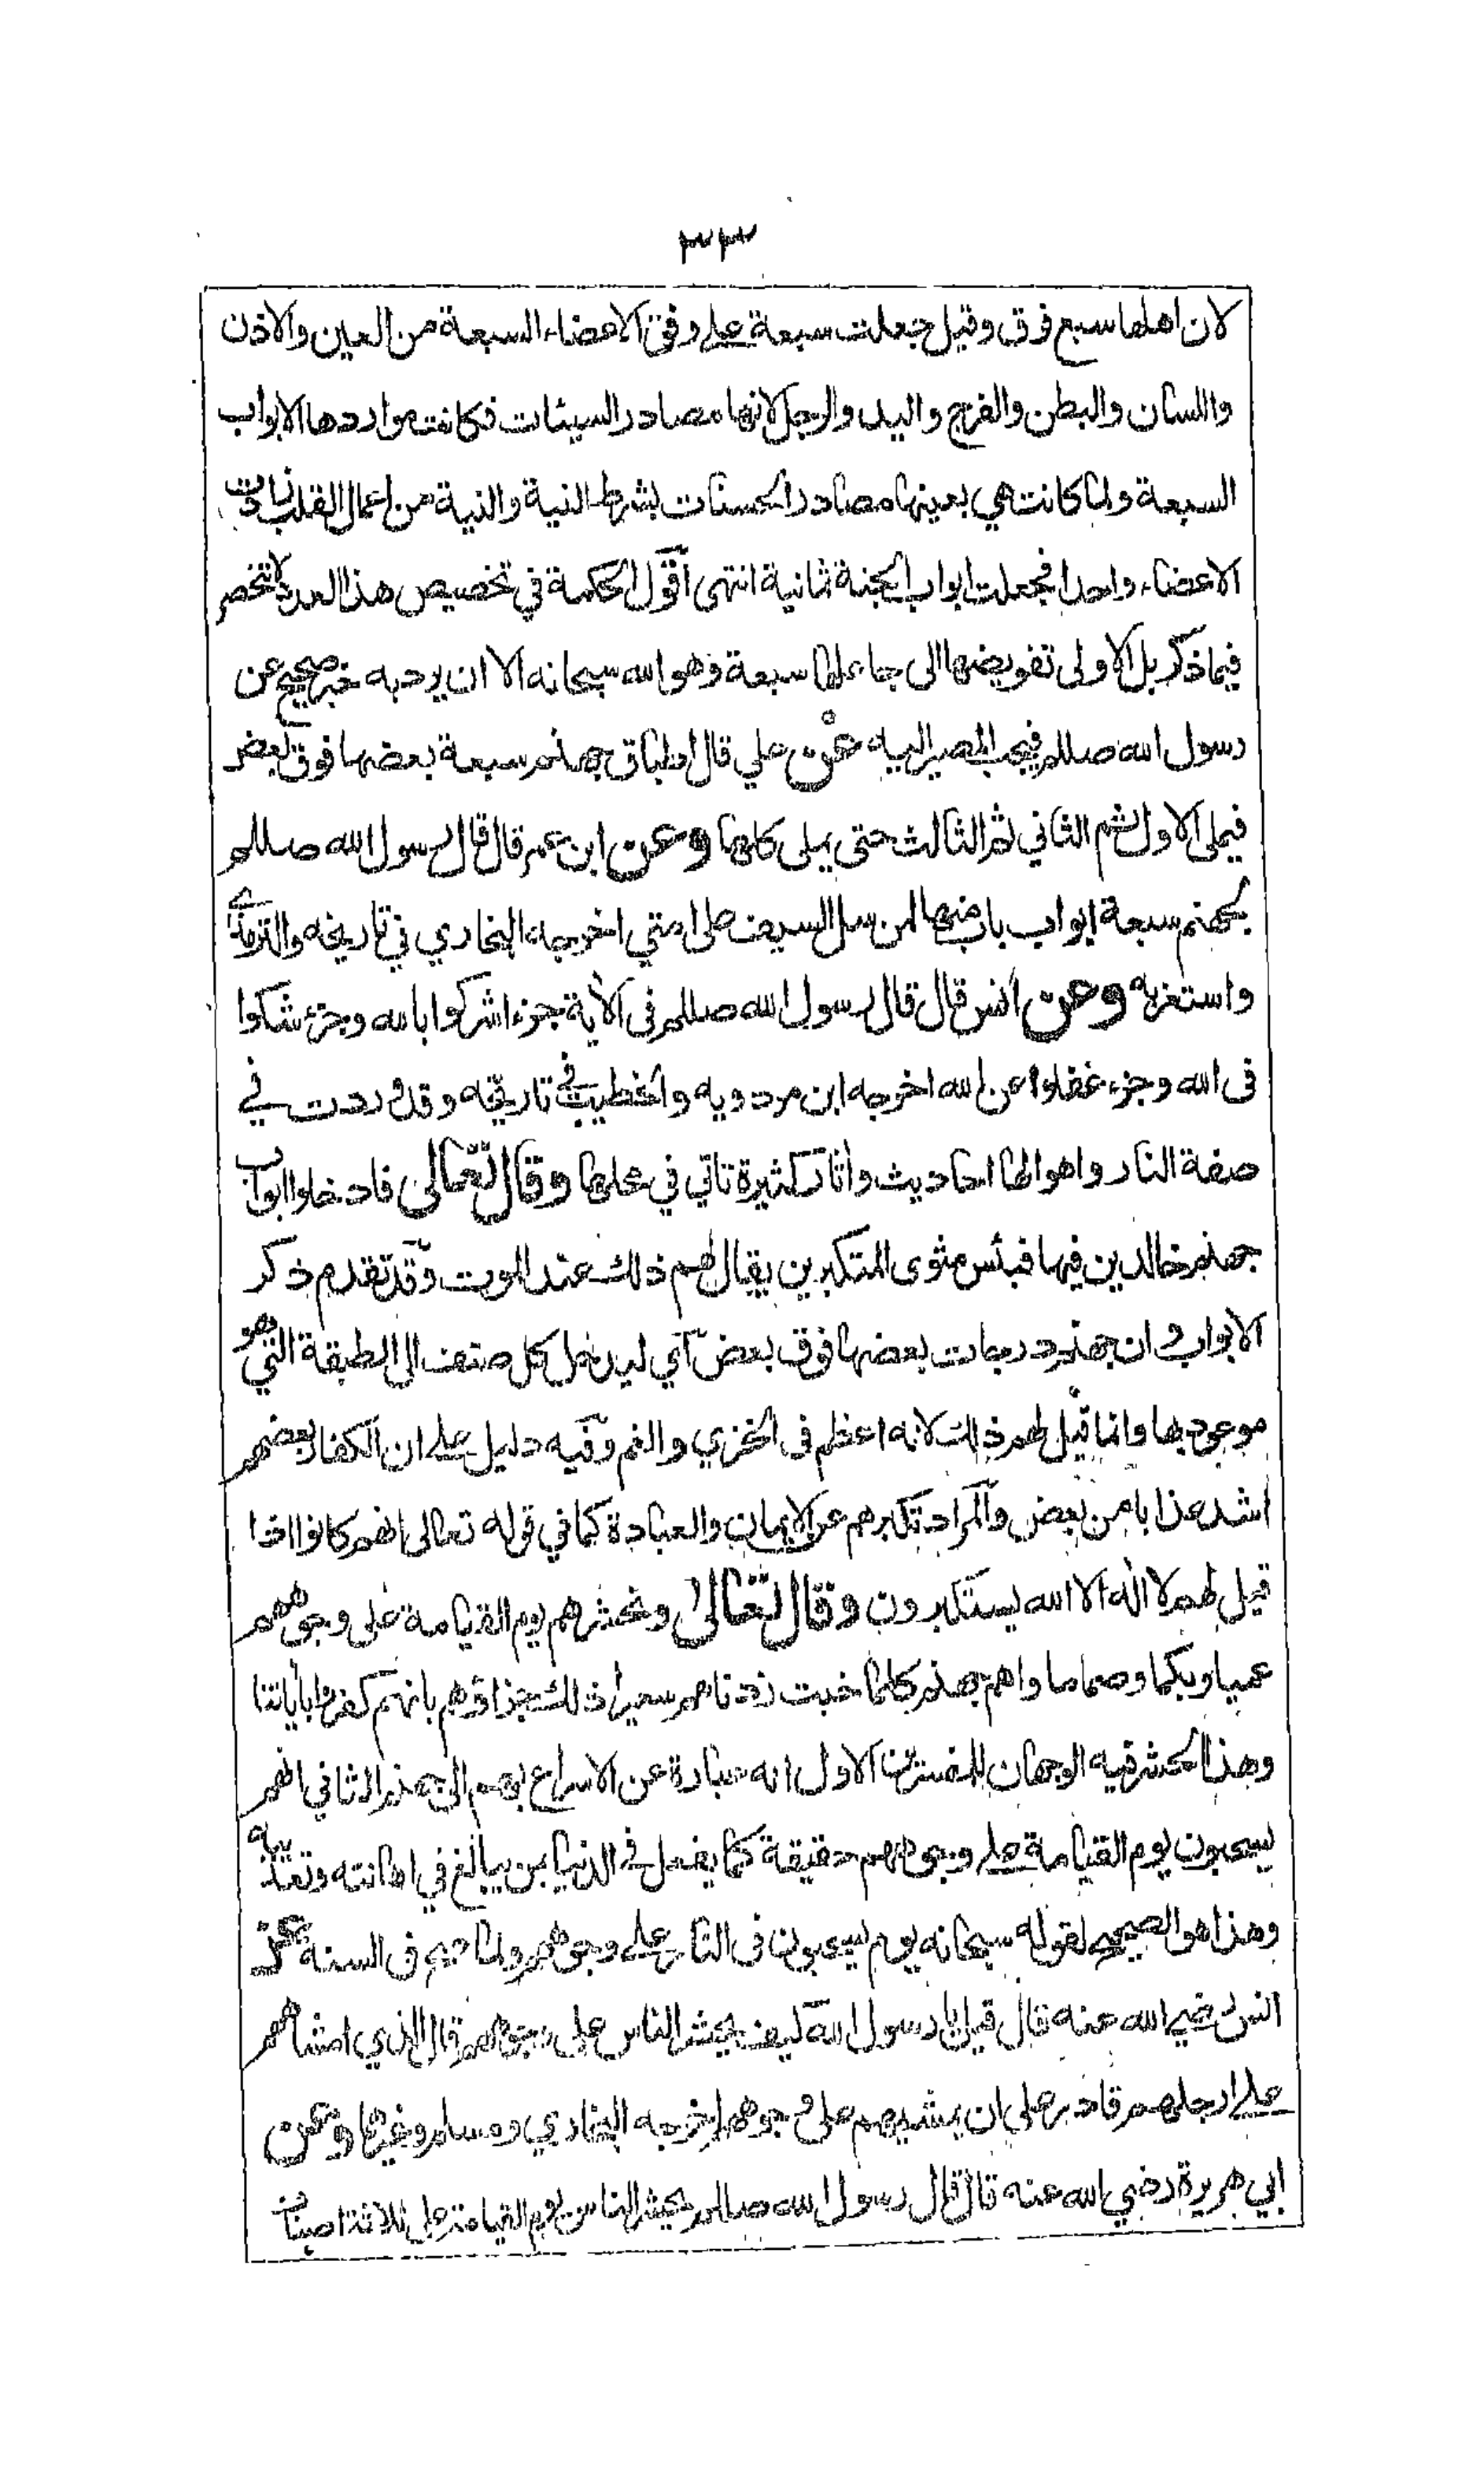 ٣٣
لان اهلها سبع فرق وقيل جعلت سبعة على وفق الاعضاء السبعة من العين والاذن
واللسان والبطن والفرج واليد والرجل لانها مصادر السيئات فكانت مواردها الابواب
السبعة ولما كانت هي بعينها مصادر الحسنات بشرط النية والنية من اعمال القلب زادت
الاعضاء واحدا فجعلت ابواب الجنة ثمانية انتهى اقول الحكمة في تخصيص هذا العدد لا تنحصر
فيما ذكر بل الاولى تفويضها الى جاعلها سبعة وهو الله سبحانه الا ان يرد به خبر صحيح عن
رسول الله صللم فيجب المصير اليه عن علي قال اطباق جهنم سبعة بعضها فوق بعض
فيملى الاول ثم الثاني ثم الثالث حتى يملى كلها وعن ابن عمر قال قال رسول الله صللم
لجهنم سبعة ابواب باب منها لمن سل السيف على امتي اخرجه البخاري في تاريخه والترمذي
واستغربه وعن انس قال قال رسول الله صللم في الآية جزء اشركوا بالله وجزء شكوا
في الله وجزء غفلوا عن الله اخرجه ابن مردويه والخطيب في تاريخه وقد وردت في
صفة النار واهوالها احاديث وآثار كثيرة تاتي في محلها وقال تعالى فادخلوا ابواب
جهنم خالدين فيها فبئس مثوى المتكبرين يقال لهم ذلك عند الموت وقد تقدم ذكر
الابواب وان جهنم درجات بعضها فوق بعض اي ليدخل كل صنف الى الطبقة التي هو
موعود بها وانما قيل لهم ذلك لانه اعظم في الخزي والغم وفيه دليل على ان الكفار بعضهم
اشد عذابا من بعض والمراد تكبرهم عن الايمان والعبادة كما في قوله تعالى انهم كانوا اذا
قيل لهم لا اله الا الله يستكبرون وقال تعالى ونحشرهم يوم القيامة على وجوههم
عميا وبكما وصما ماواهم جهنم كلما خبت زدناهم سعيرا ذلك جزاؤهم بانهم كفروا بآياتنا
وهذا الحشر فيه الوجهان للمفسرين الاول انه عبارة عن الاسراع بهم الى جهنم الثاني انهم
يسحبون يوم القيامة على وجوههم حقيقة كما يفعل في الدنيا بمن يبالغ في اهانته وتعذيبه
وهذا هو الصحيح لقوله سبحانه يوم يسحبون في النار على وجوههم ولما صح في السنة عن
انس رضي الله عنه قال قيل يا رسول الله كيف يحشر الناس على وجوههم قال الذي امشاهم
على ارجلهم قادر على ان يمشيهم على وجوههم اخرجه البخاري ومسلم وغيرهما وعن
ابي هريرة رضي الله عنه قال قال رسول الله صللم يحشر الناس يوم القيامة على ثلاثة اصناف